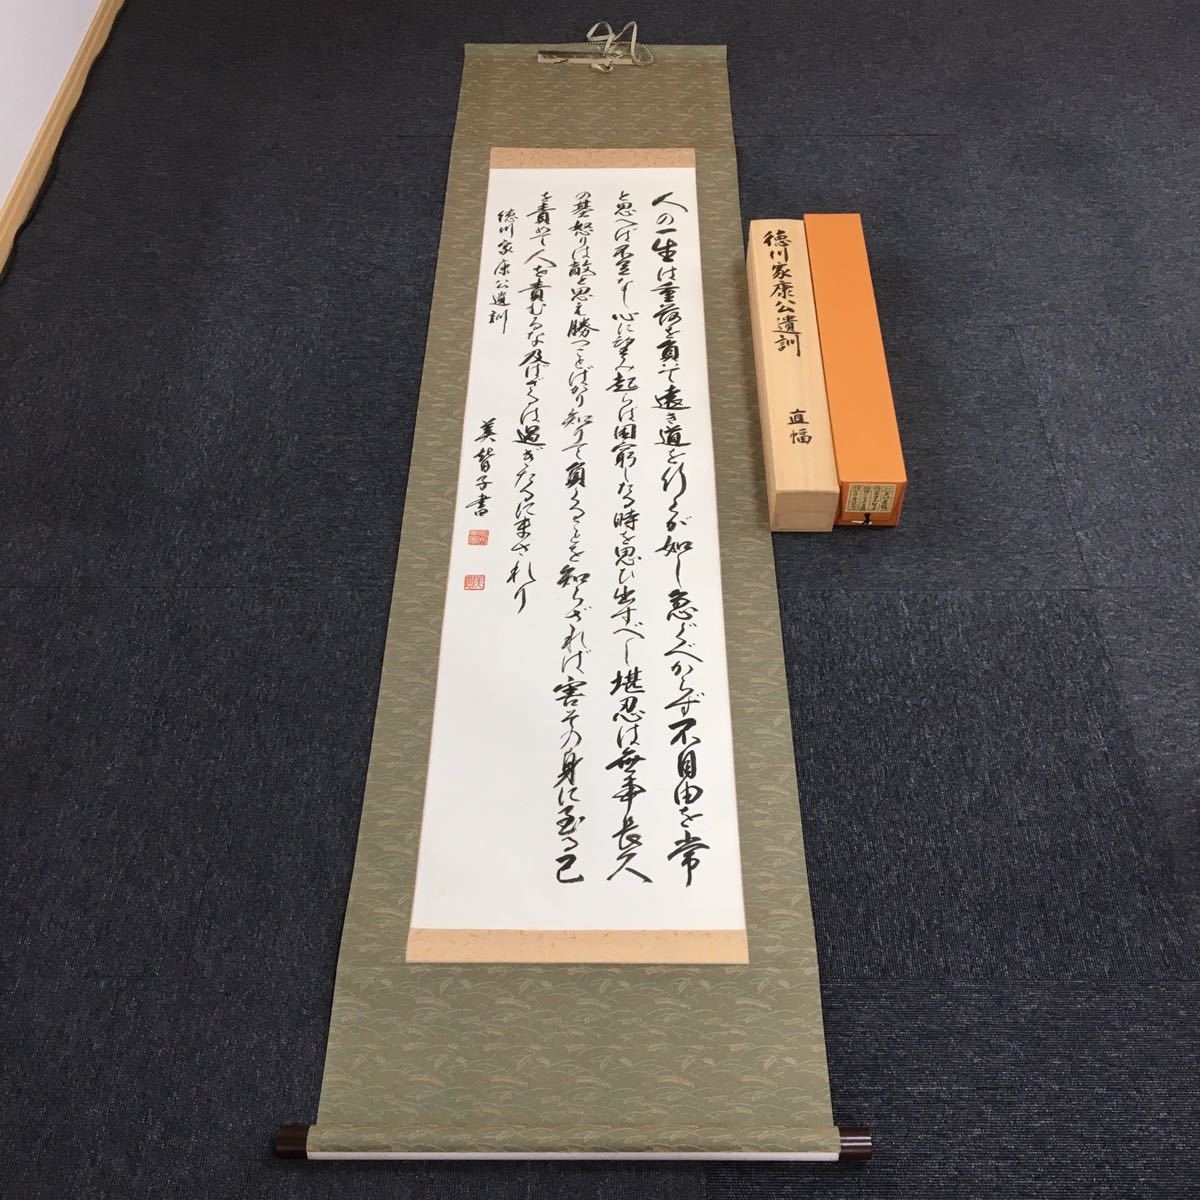 人の一生は重荷を負て遠き道を行くが如し急ぐべからず不自由を常
と思へば不足なし心に望み起らば困窮したる時を思ひ出すべし堪忍は無事長久
の基怒りは敵と思え勝つことばかり知りて負くることを知らざれば害その身に至る己
を責めて人を責むるな及ばざるは過ぎたるに まされり
徳川家康公遺訓
美智子書
徳川家康公遺訓
直幅